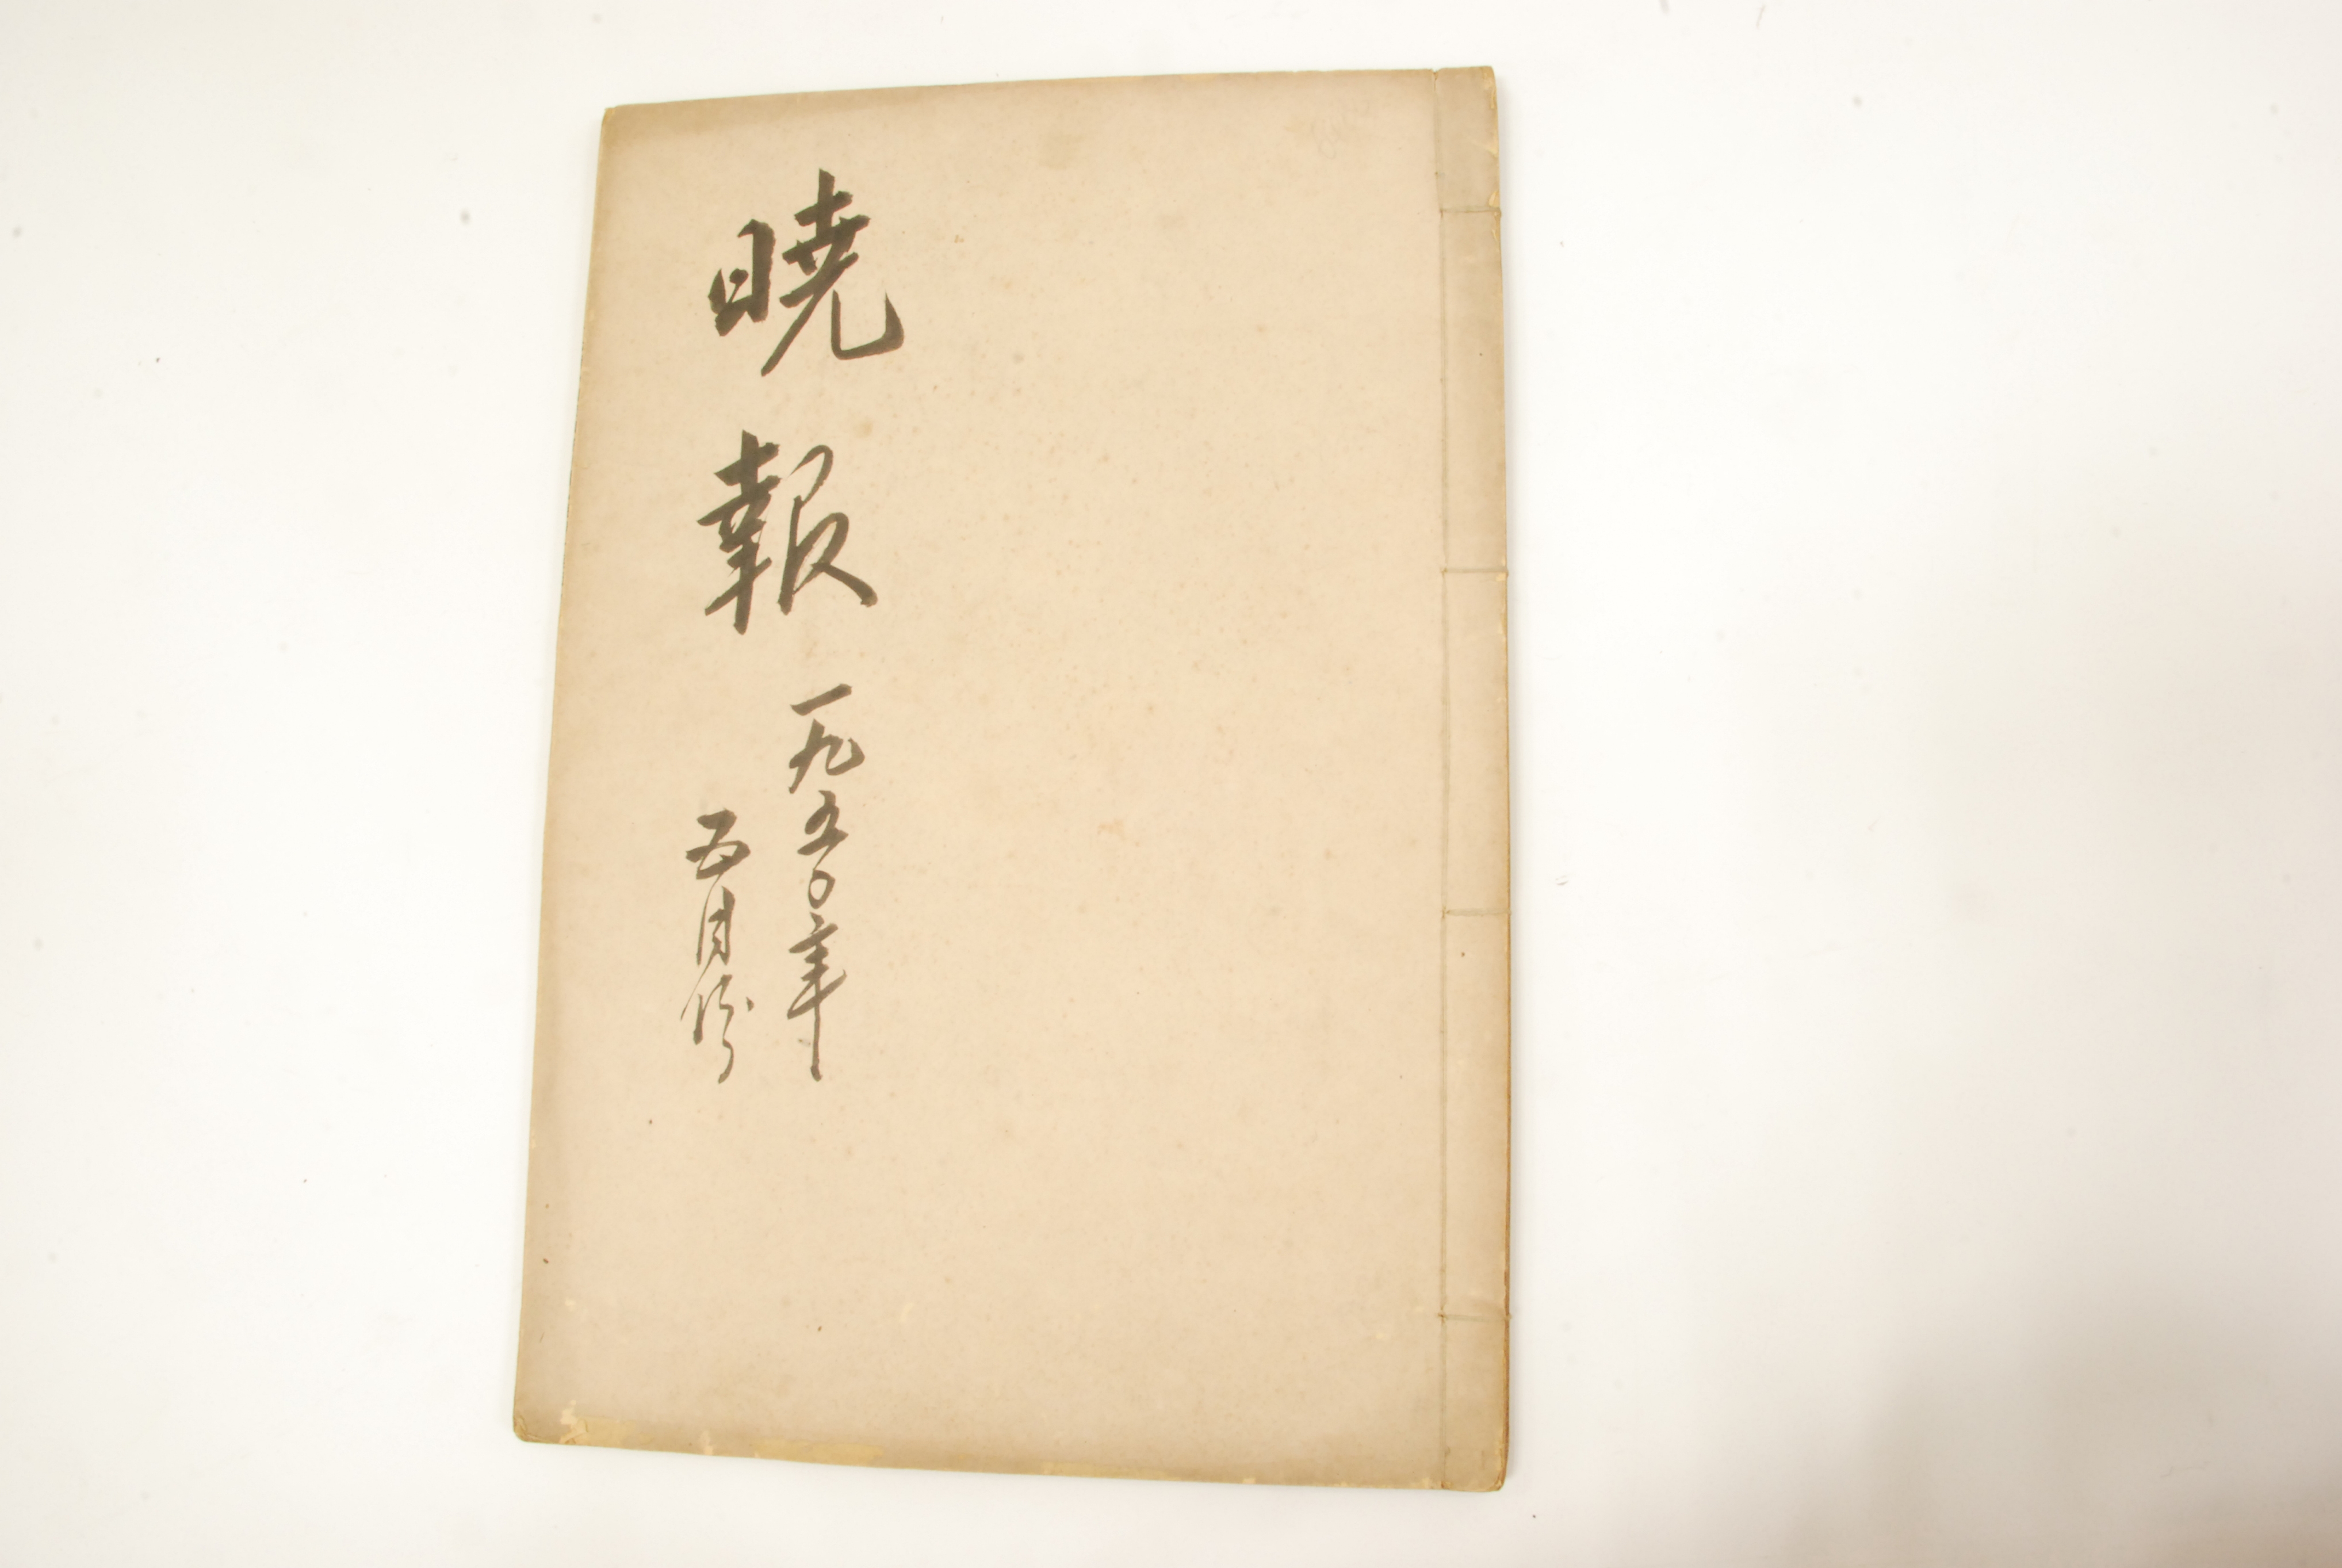 曉報
一九五〇年
五月份